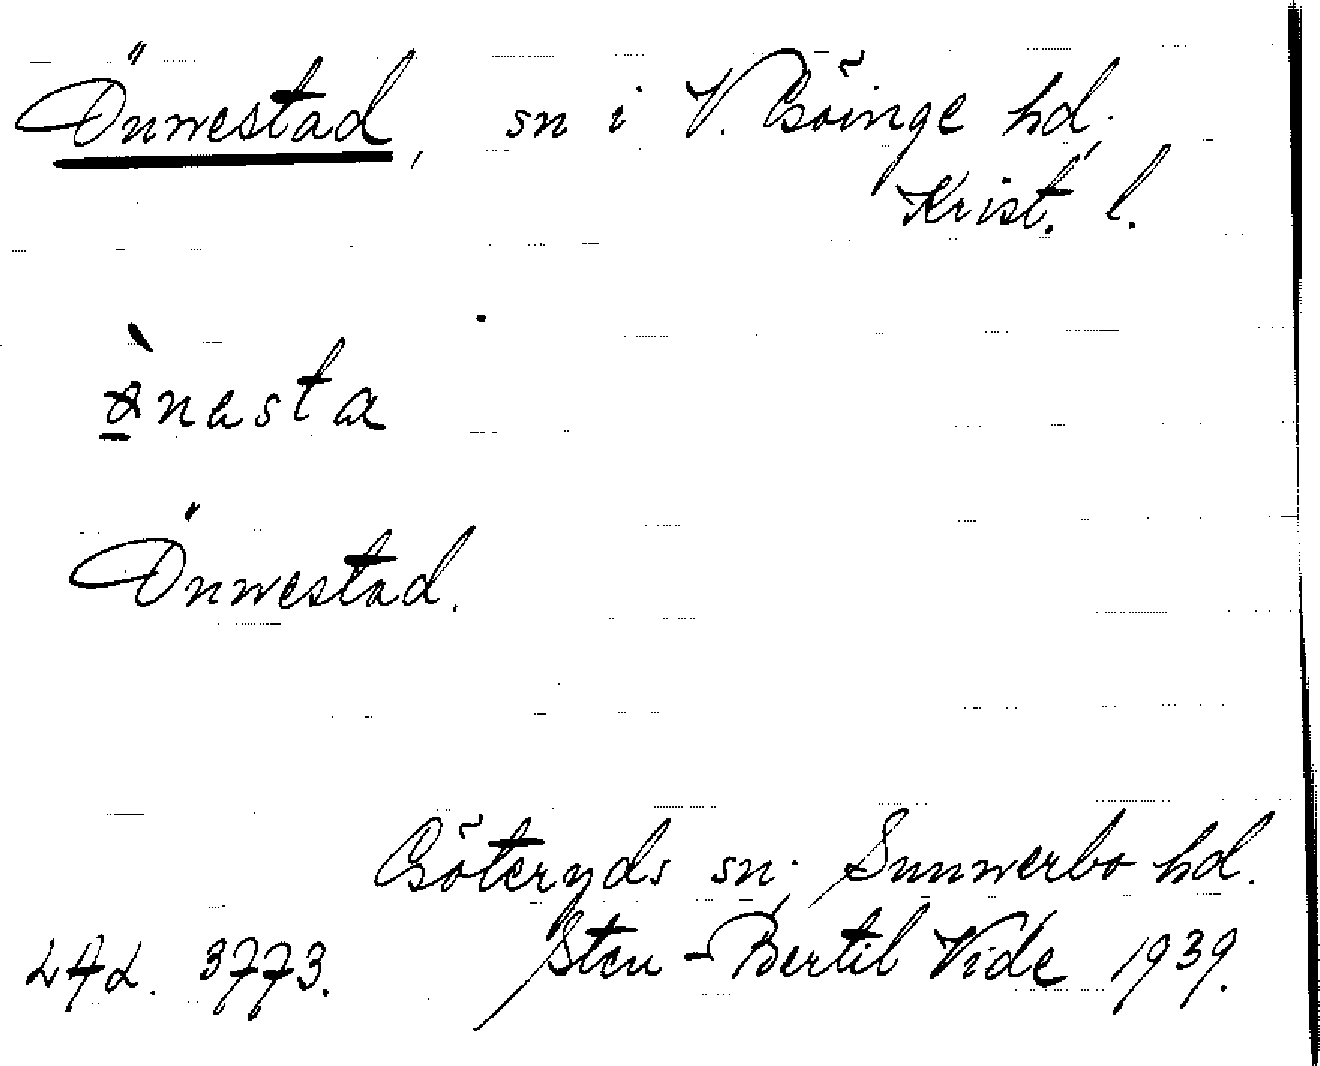 Önnestad, sn i V. Göinge hd.
Krist. l.
Önnestad.
Göteryds sn; Sunnerbo hd.
LAL. 3773. Sten-Bertil Vide 1939.